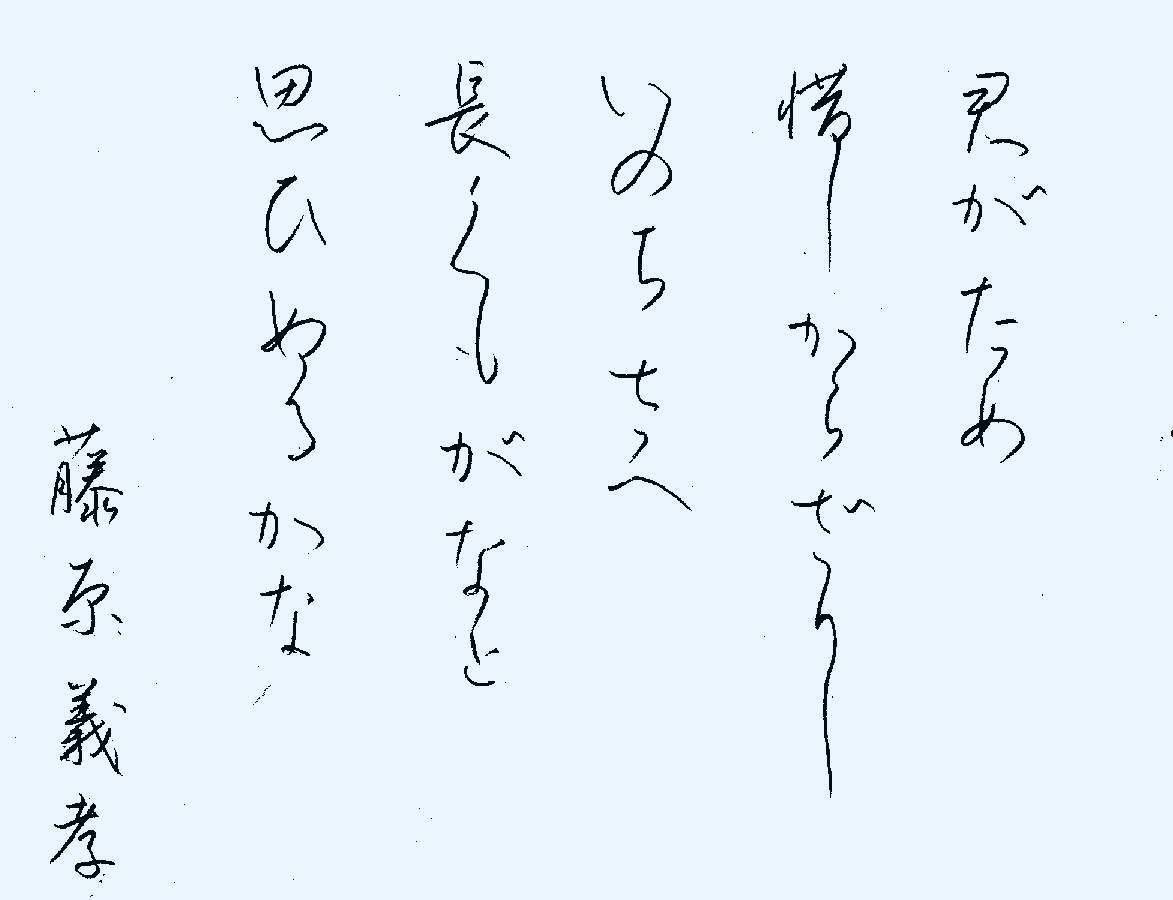 君がため
惜しからざりし
いのちさへ
長くもがなと
思ひぬるかな
藤原義孝